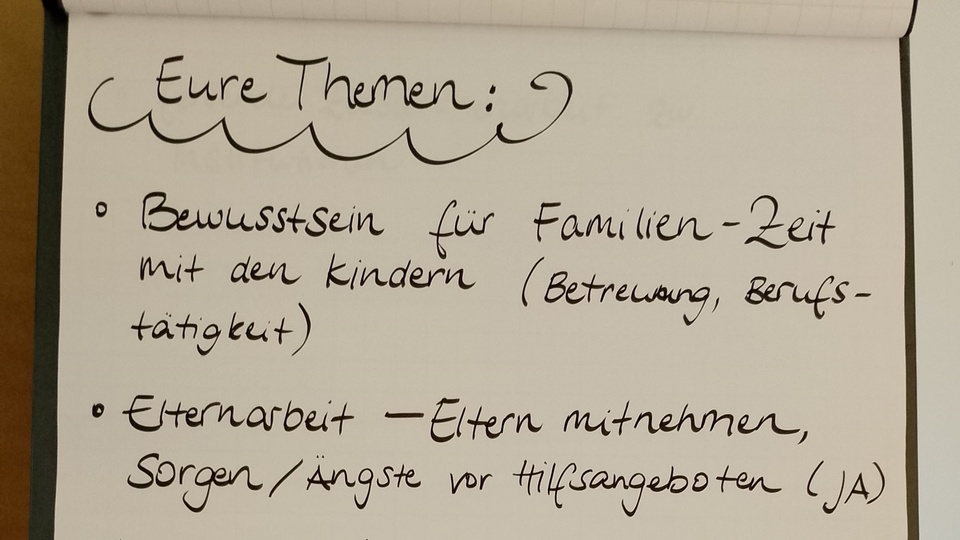 Eure Themen:
• Bewusstsein für Familien-Zeit
mit den Kindern (Betreuung, Berufs-
tätigkeit)
• Elternarbeit — Eltern mitnehmen,
Sorgen/Ängste vor Hilfsangeboten (JA)